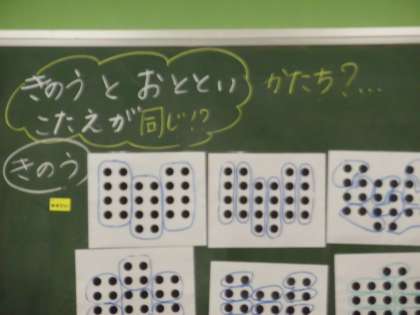 きのうとおととい
こたえが同じ!?
かたち?...
きのう